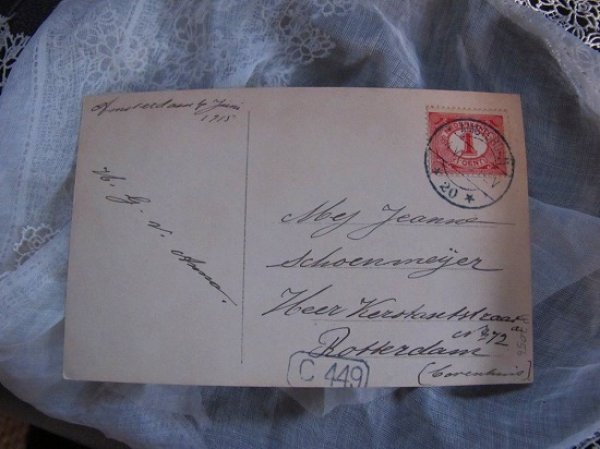 Amsterdam 4 Juni
1915
H. G. v. Anna.
1
CENT
20
Mej Jeanne
Schoenmeijer
Heer Kerstantstraat
No 372
Rotterdam
(Bovenhuis)
C 449